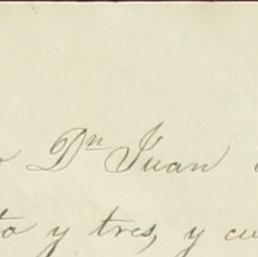 Dn Juan
to y tres, y cu